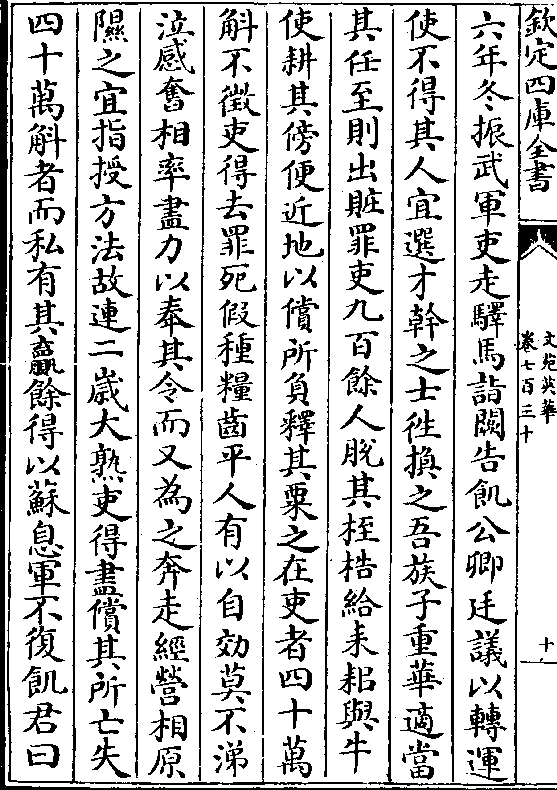 欽定四庫全書
文苑英華
卷七百三十
十
六年冬振武軍吏走驛馬詣闕告飢公卿廷議以轉運
使不得其人宜選才幹之士徃換之吾族子重華適當
其任至則出賍罪吏九百餘人脫其桎梏給耒耜與牛
使耕其傍便近地以償所負釋其粟之在吏者四十萬
斛不徵吏得去罪死假種糧齒平人有以自効莫不涕
泣感奮相率盡力以奉其令而又為之奔走經營相原
隰之宜指授方法故連二歲大熟吏得盡償其所亡失
四十萬斛者而私有其贏餘得以蘇息軍不復飢君曰